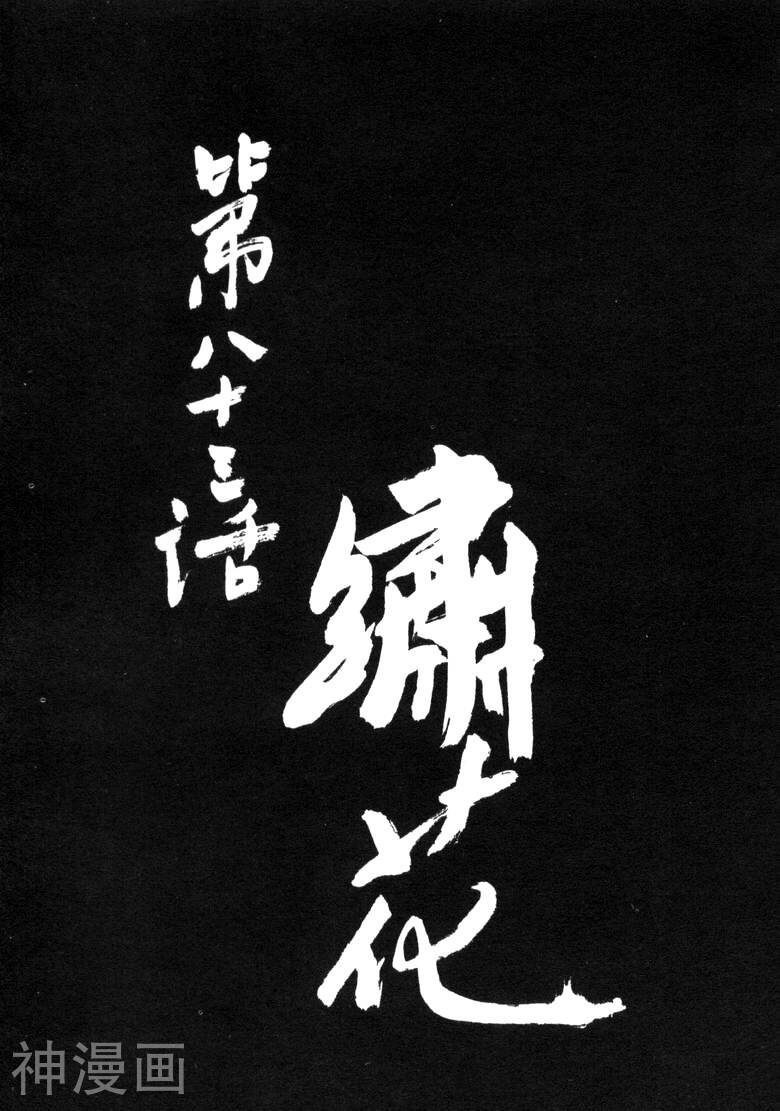 第八十三话
繡花
神漫画